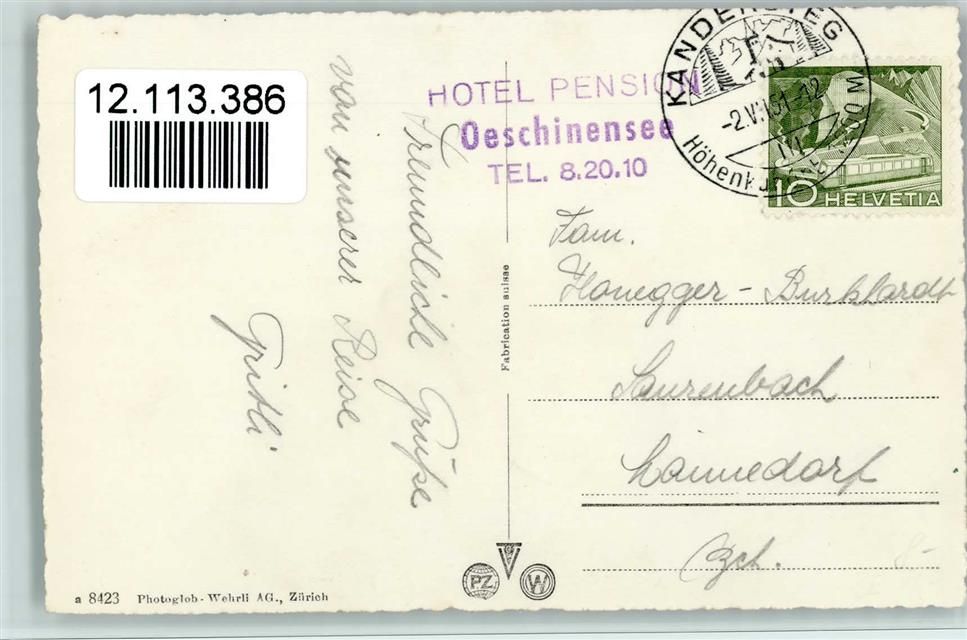 12.113.386
HOTEL PENSION
Oeschinensee
TEL. 8.20.10
KANDERSTEG
1200 M
Höhenku
10 HELVETIA
Freundliche Grüße
von unserer Reise
Gritli
Fabrication suisse
Fam.
Honegger - Burkhardt
Saurenbach
Männedorf
Zch.
8-
PZ
W
a 8423 Photoglob-Wehrli AG., Zürich